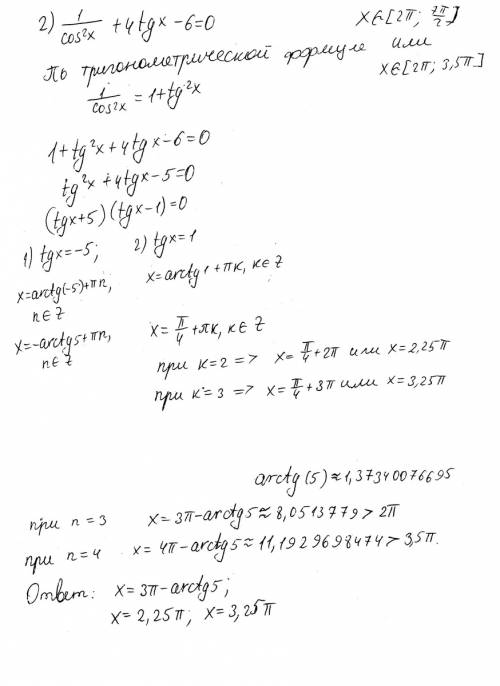 2) 1/cos²x + 4tgx - 6 = 0     x∈[2π; 7π/2]
По тригонометрической формуле или
x∈[2π; 3,5π]
1/cos²x = 1 + tg²x
1 + tg²x + 4tgx - 6 = 0
tg²x + 4tgx - 5 = 0
(tgx + 5)(tgx - 1) = 0
1) tgx = -5;     2) tgx = 1
x = arctg(-5) + πn,     x = arctg1 + πк, к∈Z
n∈Z
x = -arctg5 + πn,     x = π/4 + πк, к∈Z
n∈Z
при к=2 => x = π/4 + 2π или x = 2,25π
при к=3 => x = π/4 + 3π или x = 3,25π
arctg(5) ≈ 1,37340076695
при n=3     x = 3π - arctg5 ≈ 8,0513779 > 2π
при n=4     x = 4π - arctg5 ≈ 11,1929698474 > 3,5π.
Ответ: x = 3π - arctg5;
x = 2,25π; x = 3,25π